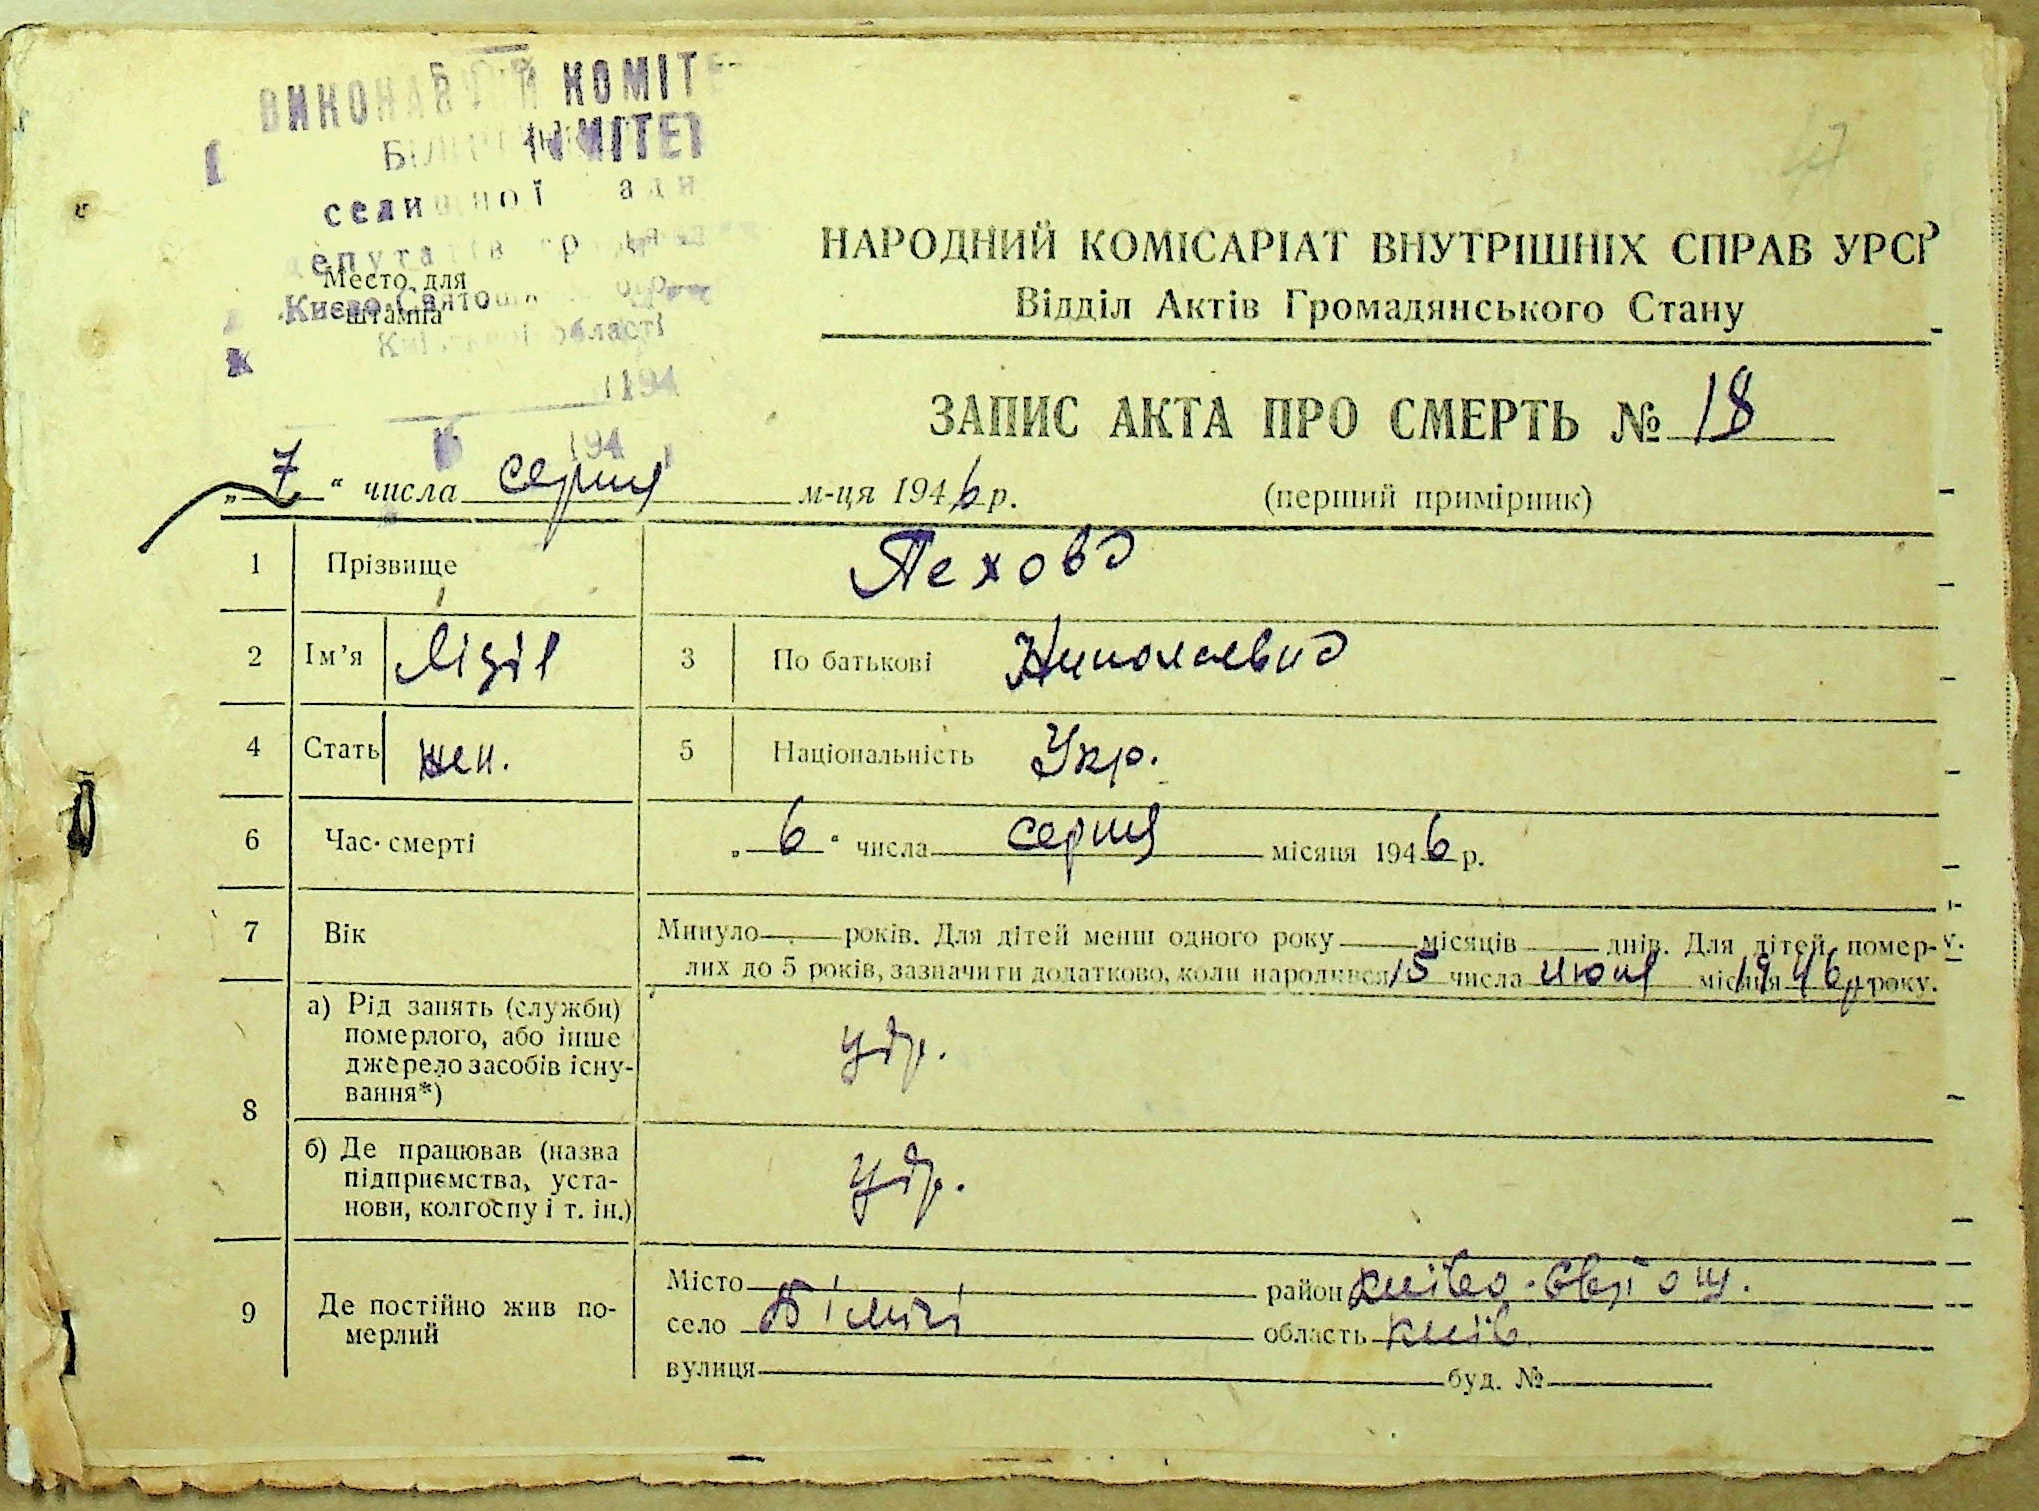 ВИКОНАВЧИЙ КОМІТЕ
КОМІТЕТ
селищної ради
депутатів
Место для
Києво-Святош
штампа
Київської області
194
194
НАРОДНИЙ КОМІСАРІАТ ВНУТРІШНІХ СПРАВ УРСР
Відділ Актів Громадянського Стану
ЗАПИС АКТА ПРО СМЕРТЬ № 18
„ 7 “ числа серпня м-ця 1946 р. (перший примірник)
1 Прізвище Пехова
2 Ім’я Лізія 3 По батькові Николаевна
4 Стать жен. 5 Національність Укр.
6 Час смерті „ 6 “ числа серпня місяця 1946 р.
7 Вік Минуло років. Для дітей менш одного року місяців днів. Для дітей, помер-
лих до 5 років, зазначити додатково, коли народився 15 числа июня місяця 1946 р року.
8 а) Рід занять (служби)
померлого, або інше
джерело засобів існу-
вання*)
утр.
б) Де працював (назва
підприємства, уста-
нови, колгоспу і т. ін.)
утр.
9 Де постійно жив по-
мерлий
Місто район Києво-Святош.
село Біличі область Київ.
вулиця буд. №